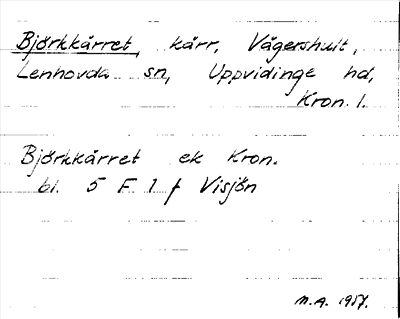 Björkkärret, kärr, Vågershult,
Lenhovda sn, Uppvidinge hd,
Kron. l.
Björkkärret ek Kron.
bl. 5 F 1 f Visjön
M.A. 1957.